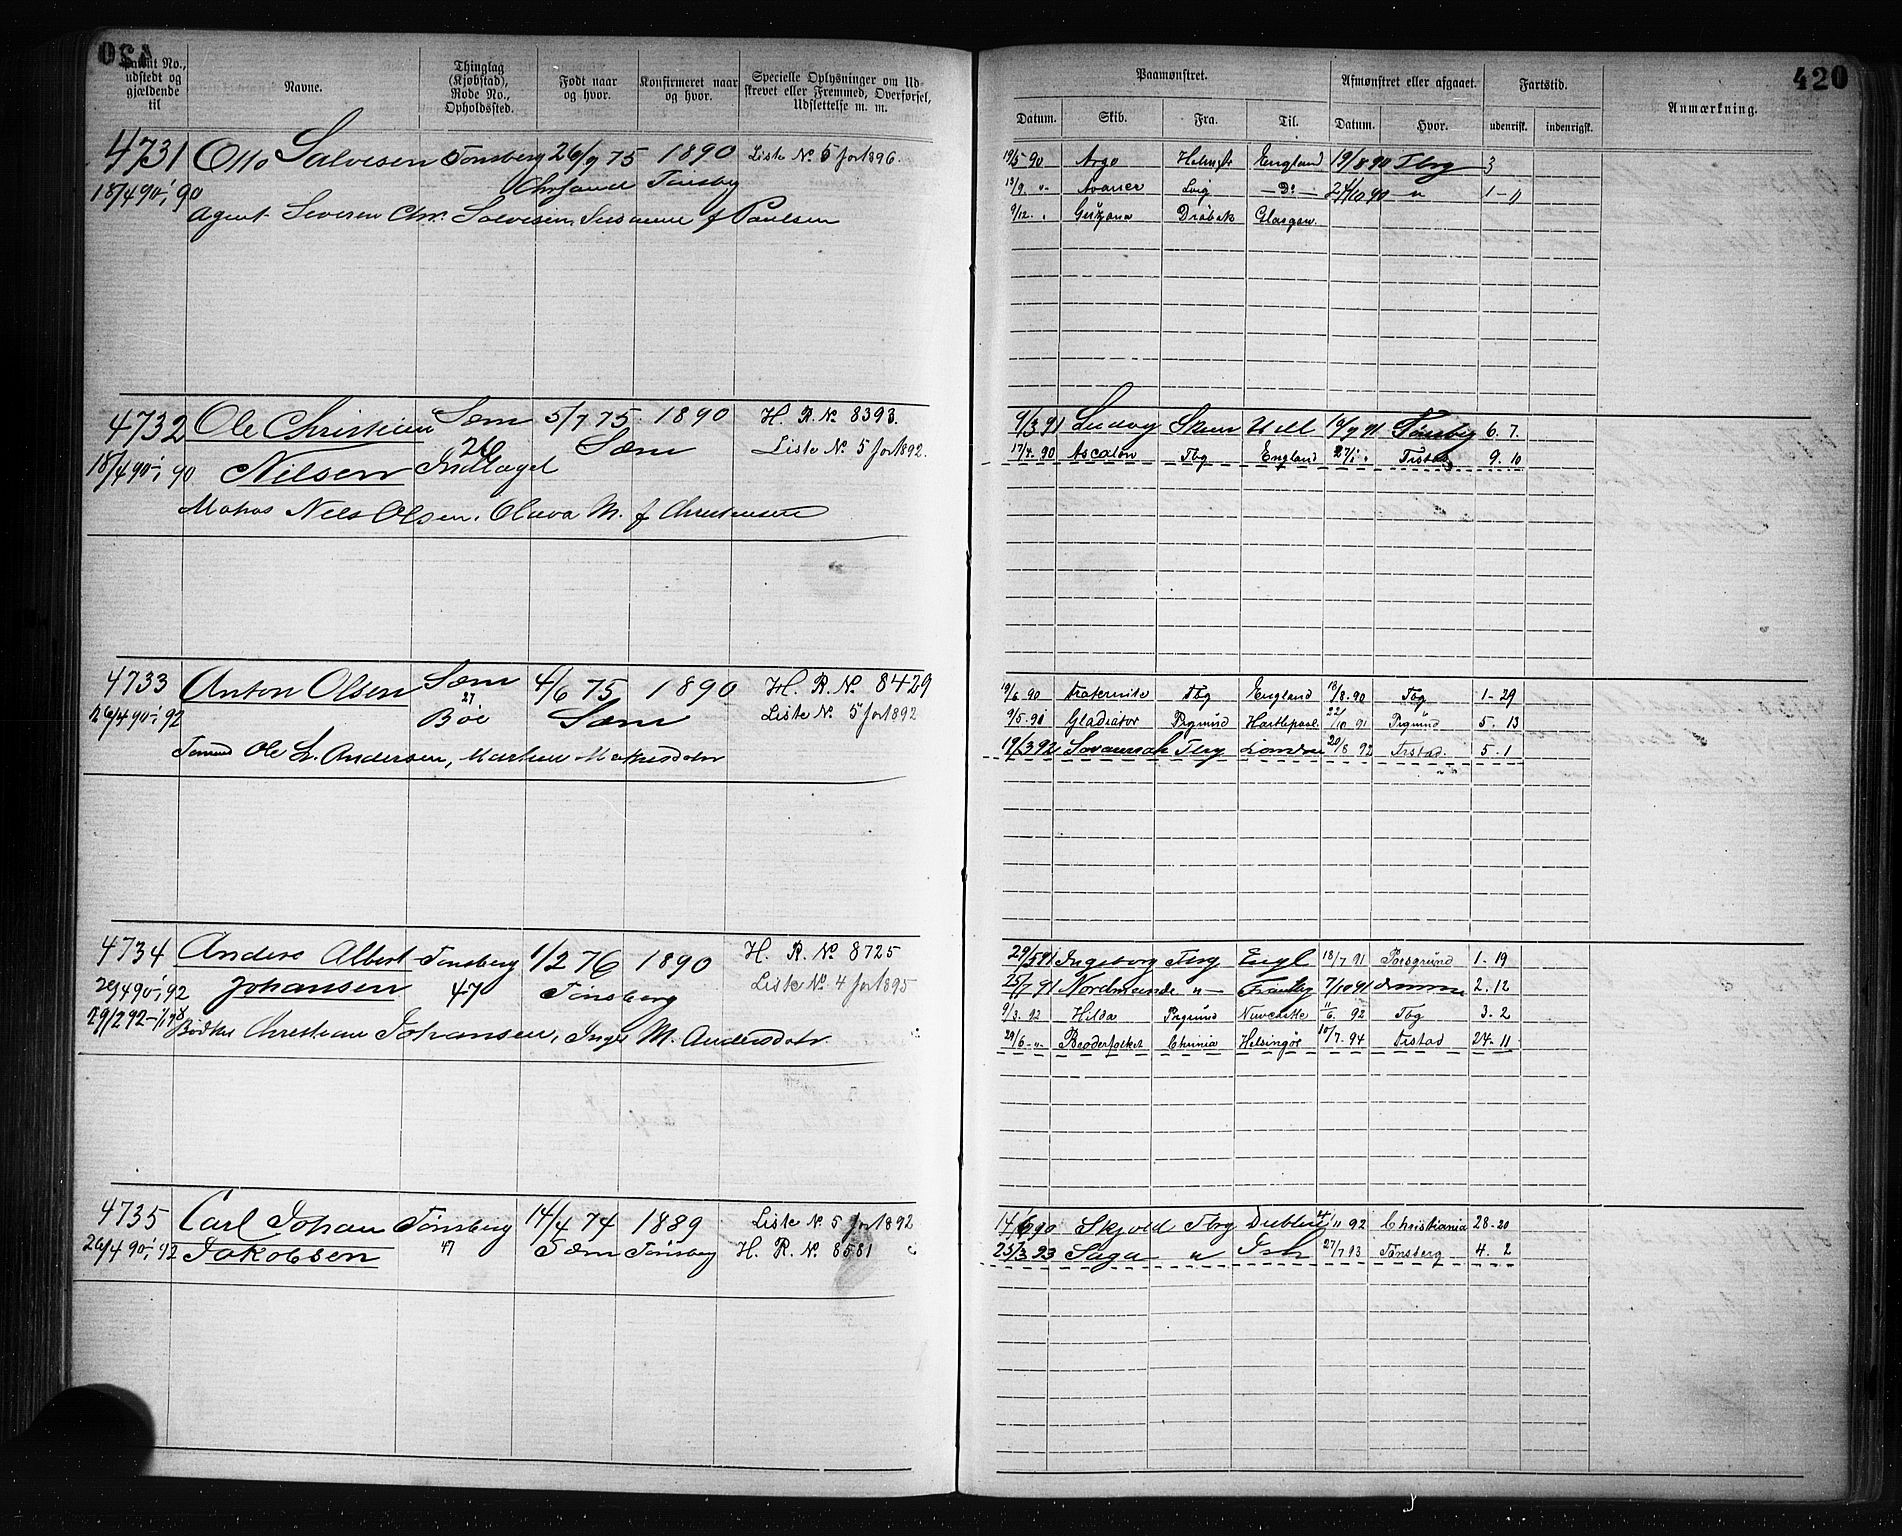 420
Patent No., udstedt og gjældende til
Navne.
Thinglag (Kjøbstad), Rode No., Opholdssted.
Født naar og hvor.
Konfirmeret naar og hvor.
Specielle Oplysninger om Udskrevet eller Fremmed, Overførsel, Udslettelse m. m.
4731 Otto Salvesen Tønsberg 26/9 75 1890 Liste No 5 for 1896.
18/4 90 i 90 Tønsbg
Agent Severin Chr. Salvesen, Susanne f Paulsen
4732 Ole Christian Sæm 5/7 75 1890 H. R. No 8393.
26 Sæm Liste No 5 for 1892.
18/4 90 i 90 Nilsen Indlaget
Matros Nils Olsen, Olava M. f Christensen
4733 Anton Olsen Sæm 4/6 75 1890 H. R. No 8429
27
26/4 90 i 92 Bøe Sæm Liste No 5 for 1892
Tømmd Ole L. Andersen, Maren Mathisdatr
4734 Anders Albert Tønsberg 1/2 76 1890 H. R. No 8725
29/4 90 i 92 Johansen 47 Tønsberg Liste No 4 for 1895
29/2 92
Bødker Christian Johansen, Inge M. Andersdatr
4735 Carl Johan Tønsberg 14/4 74 1889 Liste No 5 for 1892
26/4 90 i 92 Jakobsen 47 Sæm Tønsbg H. R. No 8581
420
Paamønstret.
Afmønstret eller afgaaet.
Fartstid.
Anmærkning.
Datum. Skib. Fra. Til. Datum. Hvor. udenrisk. indenrigsk.
19/5 90 Argo Holmstr England 19/8 90 Tbg 3
13/9 " Avance Lvig Do 24/10 90 " 1 - 11
9/12 " Drøbak Glasgow
9/3 91 Ludvig Skien Hull 19/9 91 Tønsbg 6. 7.
17/4. 90 Ascalon Tbg England 27/1 Frstad 9. 10
19/6 90 Fraternite Tbg England 18/8. 90 Tbg 1 - 29
9/5 91 Gladiator Prgrund Hartlepool 22/10 91 Prgrund 5. 13
19/3 92 Savannah Tbg London 20/8 92 Frstad. 5. 1
29/5 91 Ingeborg Tbg Engl 18/7 91 Porsgrund 1 - 19
25/7 91 " 7/10 91 2. 12
9/3. 92 Hilda Prgrund Newcastle 11/6. 92 Tbg 3. 2
29/6 " Broderfolket Chrnia Helsingør 10/7. 94 Frstad 24. 11
14/6 90 Skjold Tbg Dublin 4/11 92 Christiania 28. 20
25/3 93 Saga " 27/7 93 Tønsberg 4. 2